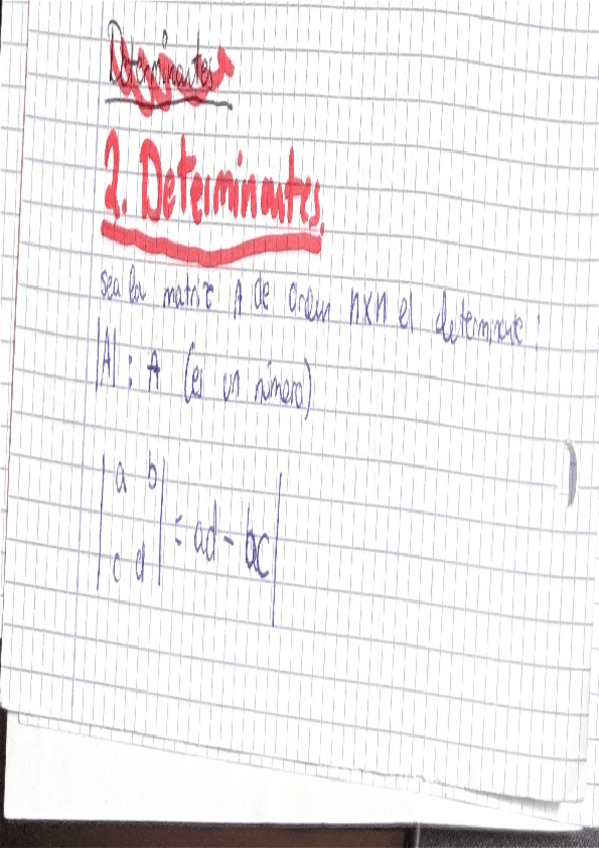 Determinantes
2. Determinantes
sea la matriz A de orden nxn el determinante:
|A| : A (es un número)
| a b |
| c d | = ad - bc |